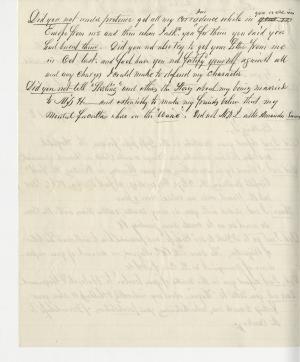 you were in
Did you not under pretence get all my correspondence while in
Europe from me and then when I ask you for them you said you
had burned them. Did you not also try to get your letters from me
in Oct last and God have you not fortify yourself against all
and any charges I could make to defend my character
Did you not tell and others the story about my being married
to Maj H and ostensibly to make my friends believe that my
mental faculties was on the wane. Did not